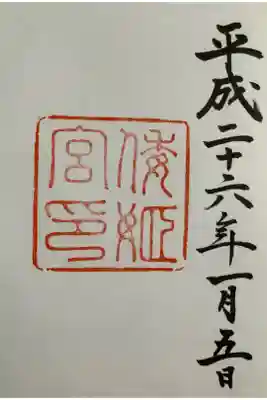 平成二十六年一月五日
倭姫
宮印